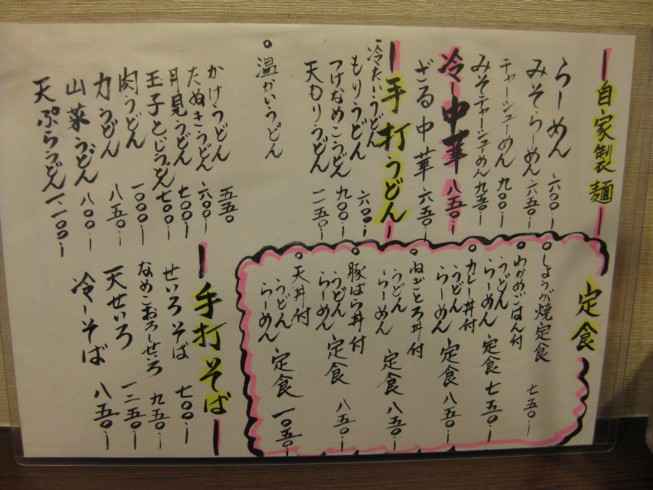 自家製麺
らーめん 六〇〇
みそらーめん 六五〇
チャーシューメン 九〇〇
みそチャーシューめん 九五〇
冷中華 八五〇
ざる中華 六五〇
手打うどん
冷たいうどん
もりうどん 六〇〇
つけなめこうどん 九〇〇
天もりうどん 一二五〇
温かいうどん
かけうどん 五五〇
たぬきうどん 六〇〇
月見うどん 七〇〇
玉子とじうどん 七〇〇
肉うどん 八〇〇
力うどん 八五〇
山菜うどん 八〇〇
天ぷらうどん 一、一〇〇
定食
しょうが焼定食 七五〇
わかめごはん付
うどん
らーめん 定食 七五〇
カレー丼付
うどん
らーめん 定食 八五〇
ねぎとろ丼付
うどん
らーめん 定食 八五〇
豚ばら丼付
うどん
らーめん 定食 八五〇
天丼付
うどん
らーめん 定食 一〇五〇
手打そば
せいろそば 七〇〇
なめこおろしせいろ 九五〇
天せいろ 一二五〇
冷しそば 八五〇